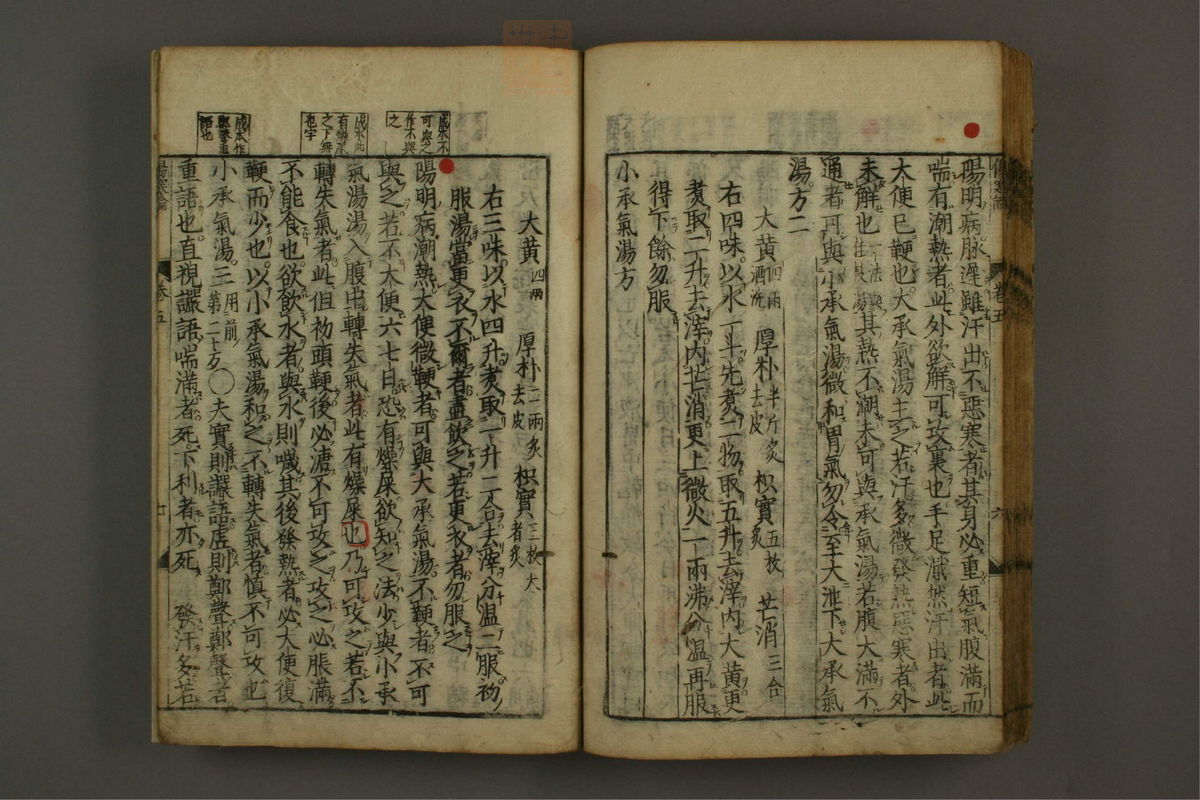 陽明病脉遲雖汗出不惡寒者其身必重短氣腹滿而
喘有潮熱者此外欲解可攻裏也手足濈然汗出者此
大便已鞕也大承氣湯主之若汗多微發熱惡寒者外
未解也一法與桂枝湯其熱不潮未可與承氣湯若腹大滿不
通者可與小承氣湯微和胃氣勿令至大泄下大承氣
湯方二
大黃四兩酒洗 厚朴半斤炙去皮 枳實五枚炙 芒消三合
右四味以水一斗先煑二物取五升去滓内大黃更
煑取二升去滓内芒消更上微火一兩沸分温再服
得下餘勿服
小承氣湯方
傷寒論 卷五 六
大黃四兩 厚朴二兩炙去皮 枳實三枚大者炙
右三味以水四升煑取一升二合去滓分温二服初
服湯當更衣不爾者盡飲之若更衣者勿服之
陽明病潮熱大便微鞕者可與大承氣湯不鞕者不可
與之若不大便六七日恐有燥屎欲知之法少與小承
氣湯湯入腹中轉失氣者此有燥屎也乃可攻之若不
轉失氣者此但初頭鞕後必溏不可攻之攻之必脹滿
不能食也欲飲水者與水則噦其後發熱者必大便復
鞕而少也以小承氣湯和之不轉失氣者慎不可攻也
小承氣湯三用前第二方〇夫實則讝語虛則鄭聲鄭聲者
重語也直視讝語喘滿者死下利者亦死 發汗多若
傷寒論 卷五 七
成本不
可與之
作不與
之
成本此
有燥屎
之下無
也字
成本作
鄭聲重
語也